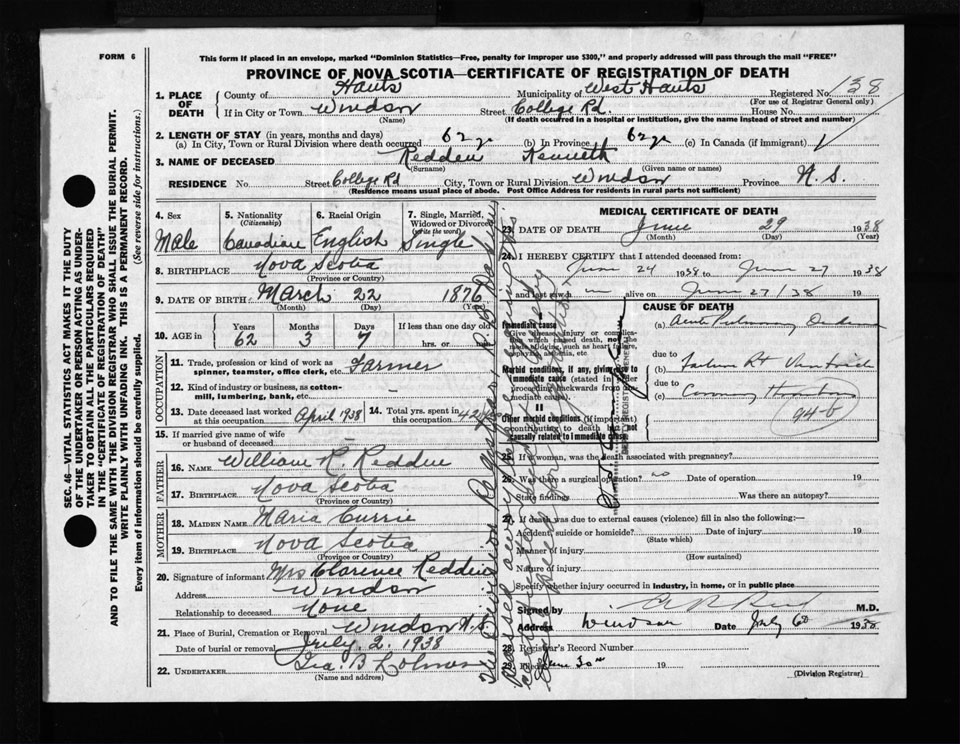 FORM 6
This form if placed in an envelope, marked "Dominion Statistics—Free, penalty for improper use $300," and properly addressed will pass through the mail "FREE"
PROVINCE OF NOVA SCOTIA—CERTIFICATE OF REGISTRATION OF DEATH
1. PLACE OF DEATH
County of Hants Municipality of West Hants Registered No. 138
(For use of Registrar General only)
If in City or Town Windsor Street College Rd. House No.
(Name) (If death occurred in a hospital or institution, give the name instead of street and number)
2. LENGTH OF STAY (in years, months and days)
(a) In City, Town or Rural Division where death occurred 62 yr (b) In Province 62 yr (c) In Canada (if immigrant)
3. NAME OF DECEASED Redden Kenneth
(Surname) (Given name or names)
RESIDENCE No. Street College Rd City, Town or Rural Division Windsor Province N.S.
(Residence means usual place of abode. Post Office Address for residents in rural parts not sufficient)
4. Sex Male
5. Nationality (Citizenship) Canadian
6. Racial Origin English
7. Single, Married, Widowed or Divorced (write the word) Single
8. BIRTHPLACE Nova Scotia
(Province or Country)
9. DATE OF BIRTH March 22 1876
(Month) (Day) (Year)
10. AGE in Years 62 Months 3 Days 7 If less than one day old hrs. or
OCCUPATION
11. Trade, profession or kind of work as spinner, teamster, office clerk, etc. Farmer
12. Kind of industry or business, as cotton-mill, lumbering, bank, etc.
13. Date deceased last worked at this occupation April 1938
14. Total yrs. spent in this occupation 42
15. If married give name of wife or husband of deceased
FATHER
16. NAME William R. Redden
17. BIRTHPLACE Nova Scotia
(Province or Country)
MOTHER
18. MAIDEN NAME Maria Currie
19. BIRTHPLACE Nova Scotia
(Province or Country)
20. Signature of informant Mrs Clarence Redden
Address Windsor
Relationship to deceased None
21. Place of Burial, Cremation or Removal Windsor N.S.
Date of burial or removal July 2. 1938
22. UNDERTAKER
(Name and address)
MEDICAL CERTIFICATE OF DEATH
23. DATE OF DEATH June 29 1938
(Month) (Day) (Year)
24. I HEREBY CERTIFY that I attended deceased from:
June 24 1938 to June 27 1938
and last saw m alive on June 27/38 19
CAUSE OF DEATH
Immediate cause
Give disease, injury or complication which caused death, not the mode of dying, such as heart failure, asphyxia, asthenia, etc
(a) Acute Pulmonary
due to
(b) Failure Rt Ventricle
due to
(c) Coronary
94-b
Morbid conditions, if any, giving rise to immediate cause (stated in order proceeding backwards from immediate cause)
II
Other morbid conditions (if important) contributing to death but not causally related to immediate cause
25. If a woman, was the death associated with pregnancy?
26. Was there a surgical operation? no Date of operation 19
State findings Was there an autopsy?
27. If death was due to external causes (violence) fill in also the following:—
Accident, suicide or homicide? Date of injury 19
(State which)
Manner of injury
(How sustained)
Nature of injury
Specify whether injury occurred in industry, in home, or in public place
Signed by M.D.
Address Windsor Date July 6 1938
28. Registrar's Record Number
29. Filed June 30 19
(Division Registrar)
SEC. 46—VITAL STATISTICS ACT MAKES IT THE DUTY
OF THE UNDERTAKER OR PERSON ACTING AS UNDER-
TAKER TO OBTAIN ALL THE PARTICULARS REQUIRED
IN THE "CERTIFICATE OF REGISTRATION OF DEATH"
AND TO FILE THE SAME WITH THE DIVISION REGISTRAR WHO SHALL ISSUE THE BURIAL PERMIT.
WRITE PLAINLY WITH UNFADING INK. THIS IS A PERMANENT RECORD.
Every item of information should be carefully supplied. (See reverse side for instructions.)